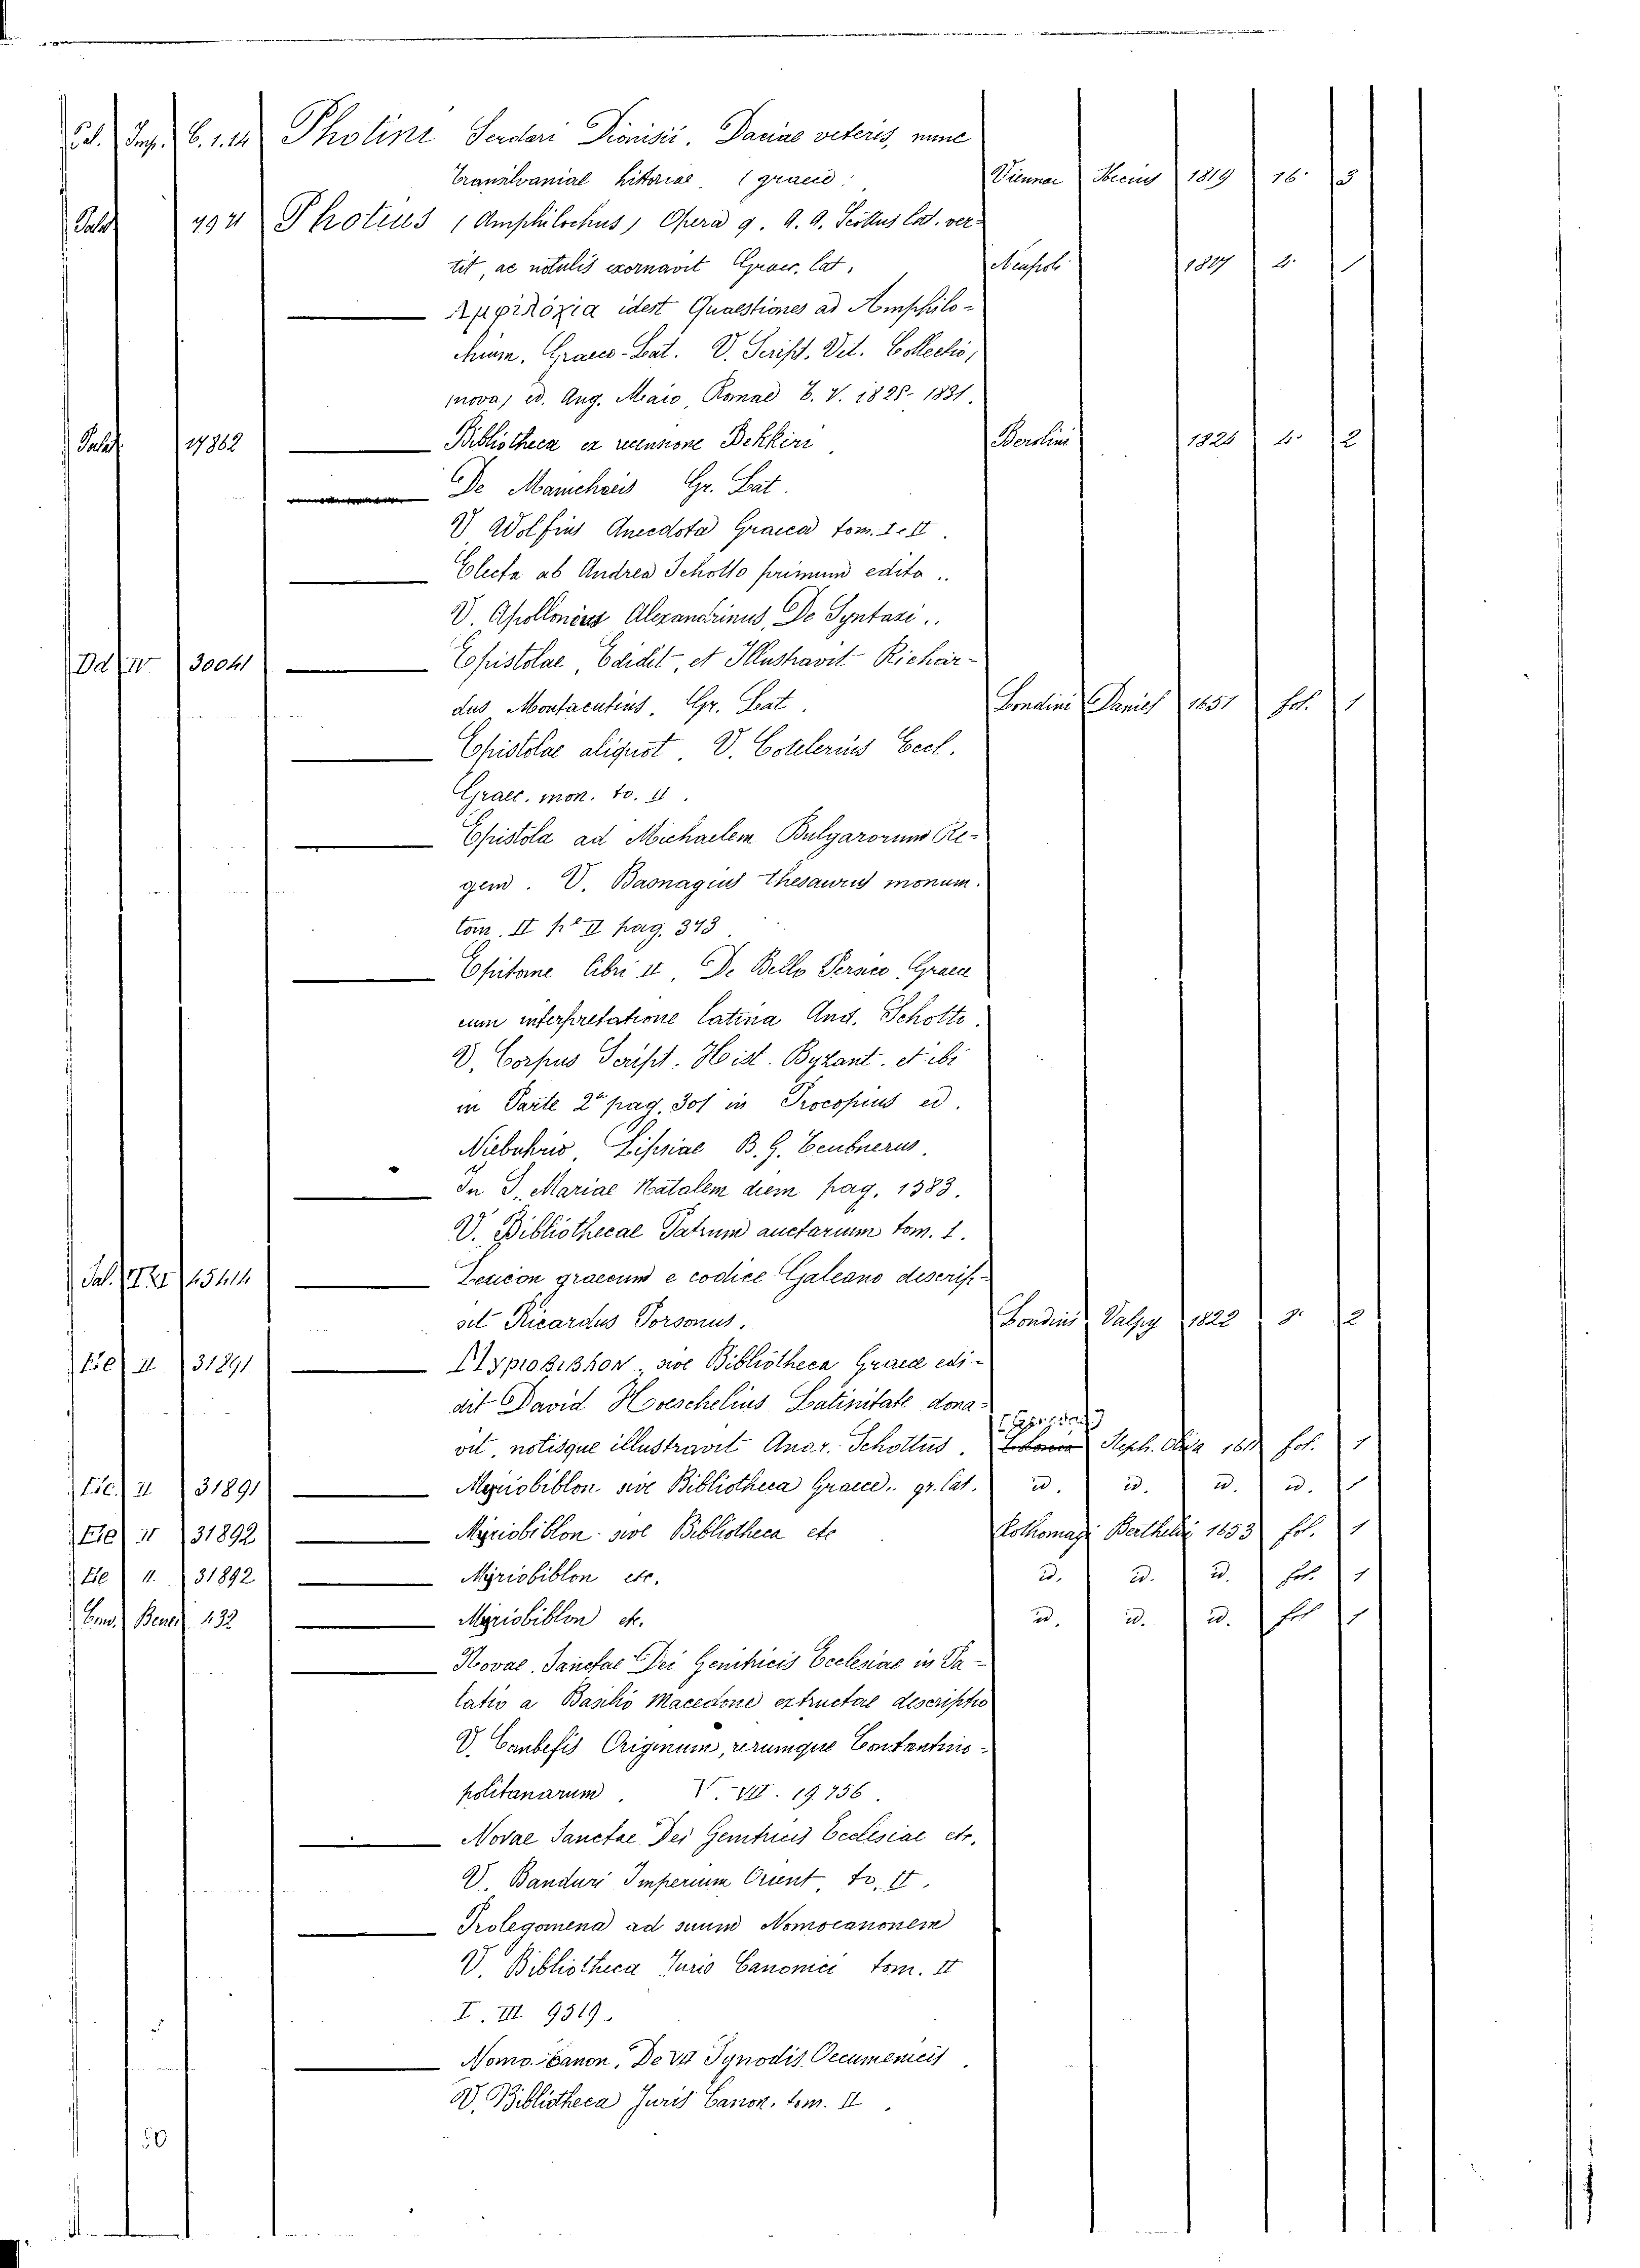 Imp. 6.1.14 Photini Serderi Dionisii. Daciae veteris, nunc
Transilvaniae historiae (graece. Viennae 1819 16. 3
794 Photius (Amphilochus) Opera q. A. A. Scottus lat. ver-
tit, ac notulis exornavit Graec. lat. Neapoli 1817 2. 1
Αμφιλόχια idest Quaestiones ad Amphilo-
chium. Graeco-Lat. V. Script. Vet. Collectio,
nova, ed. Aug. Maio, Romae T. V. 1825-1831.
Palat 17862 Bibliotheca ex recensione Bekkeri Berolini 1824 4. 2
De Manichaeis Gr. Lat.
V Wolfius Anecdota Graeca tom. I. II.
Electa ab Andrea Schotto primum edita..
V. Apollonius Alexandrinus, De Syntaxi..
Dd IV 30041 Epistolae, Edidit, et Illustravit Richar-
dus Montacutius. Gr. Lat. Londini Daniel 1651 fol. 1
Epistolae aliquot. V. Cotelerius Eccl.
Graec. mon. to. II.
Epistola ad Michaelem Bulgarorum Re-
gem. V. Basnagius thesaurus monum.
tom. II pe II pag. 373
Epitome libri II, De Bello Persico, Graece
cum interpretatione latina And. Schotto.
V. Corpus Script. Hist. Byzant. et ibi
in Parte 2a pag. 301 in Procopius ed.
Niebuhrio, Lipsiae B. G. Teubnerus.
In S. Mariae Natalem diem pag. 1583.
V. Bibliothecae Patrum auctarium tom. 1.
Lexicon graecum e codice Galeano descrip-
sit Ricardus Porsonus. Londini Valpy 1822 8. 2
II 31891 Μυριοβιβλον, sive Bibliotheca Graece edi-
dit David Hoeschelius Latinitate dona-
vit, notisque illustravit Andr. Schottus. Steph. fol. 1
II 31891 Myriobiblon sive Bibliotheca Graece.. gr. lat. id. id. id. id. 1
II 31892 Myriobiblon sive Bibliotheca etc Rothomagi Berthelin 1653 fol. 1
II. 31892 Myriobiblon etc. id. id. id. fol. 1
132 Myriobiblon etc. id. id. id. fol 1
Novae Sanctae Dei Genitricis Ecclesiae in Pa-
latio a Basilio Macedone extructae descriptio
V. Canbefis Originum, rerumque Contantino-
politanarum. V. VII. 19.756.
Novae Sanctae Dei Genitricis Ecclesiae etc.
V. Banduri Imperium Orient. to. II.
Prolegomena ad suum Nomocanonem
V. Bibliotheca Juris Canonici tom. II
I. III 9319.
Nomo-Canon, De VII Synodis Oecumenicis.
V. Bibliotheca Juris Canon. tom. II.
50